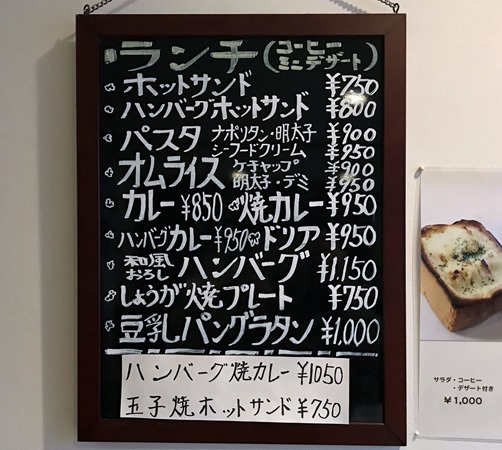 ランチ(コーヒー ミニデザート)
ホットサンド ¥750
ハンバーグホットサンド ¥800
パスタ ナポリタン・明太子 ¥900
シーフードクリーム ¥950
オムライス ケチャップ ¥900
明太子・デミ ¥950
カレー ¥850 焼カレー ¥950
ハンバーグカレー ¥950 ドリア ¥950
和風おろし ハンバーグ ¥1,150
しょうが焼プレート ¥750
豆乳パングラタン ¥1,000
ハンバーグ焼カレー ¥1050
玉子焼ホットサンド ¥750
サラダ・コーヒー
・デザート付き
¥1,000